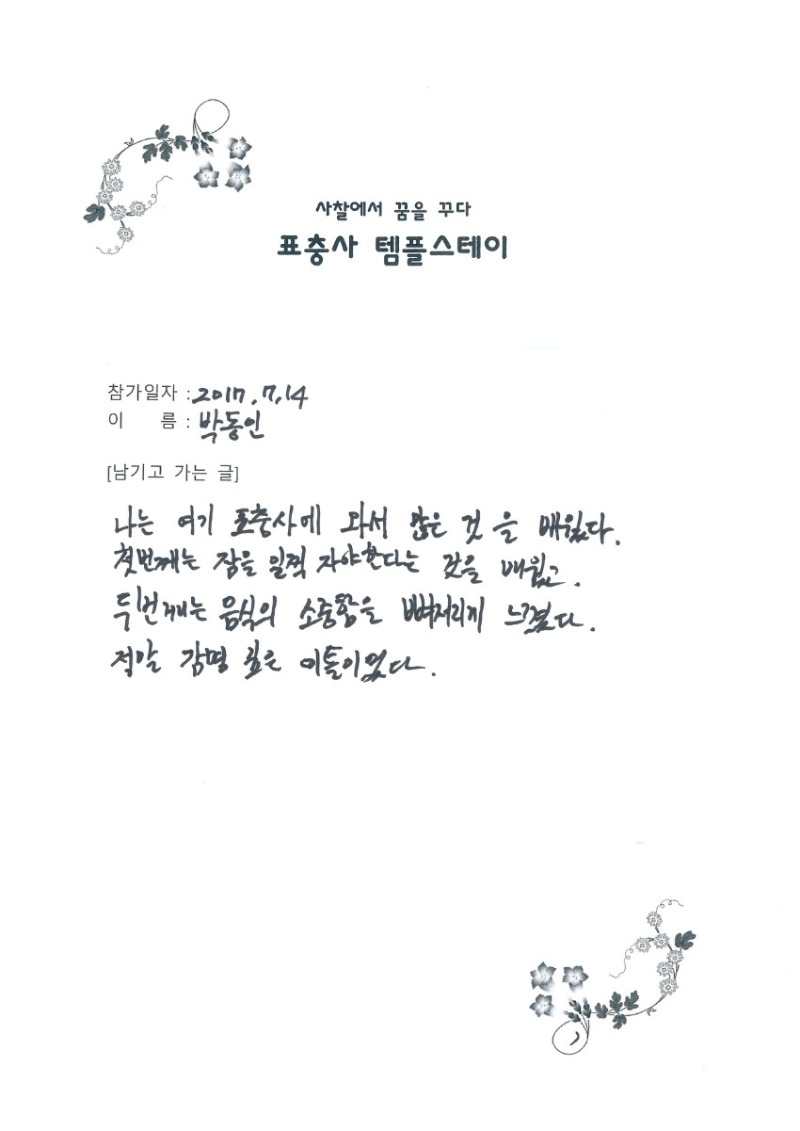 사찰에서 꿈을 꾸다
표충사 템플스테이
참가일자 : 2017. 7. 14
이 름 : 박동인
[남기고 가는 글]
나는 여기 표충사에 와서 많은 것을 배웠다.
첫번째는 잠을 일찍 자야한다는 것을 배웠고.
두번째는 음식의 소중함을 뼈저리게 느꼈다.
정말 감명 깊은 이틀이었다.